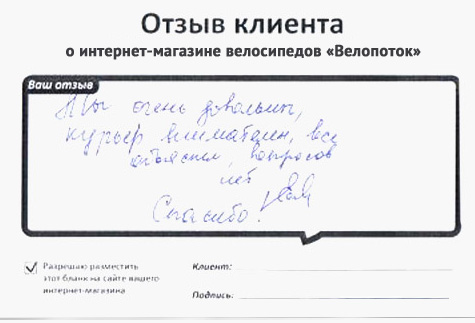 Отзыв клиента
о интернет-магазине велосипедов «Велопоток»
Ваш отзыв
Мы очень довольны,
курьер внимателен, все
объяснил, вопросов
нет
Спасибо!
Разрешаю разместить
этот бланк на сайте вашего
интернет-магазина
Клиент:
Подпись: